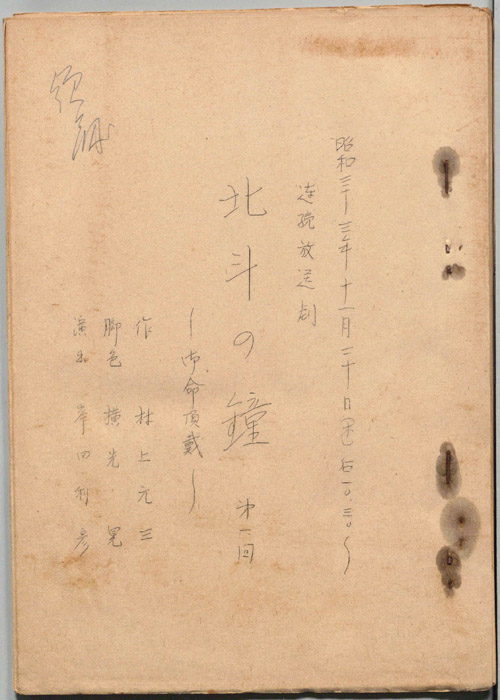 昭和三十三年十一月二十日(木)后一〇.三〇〜
連続放送劇
北斗の鐘 第一回
〜御命頂戴〜
作 村上元三
脚色 横光晃
演出 岸田利彦